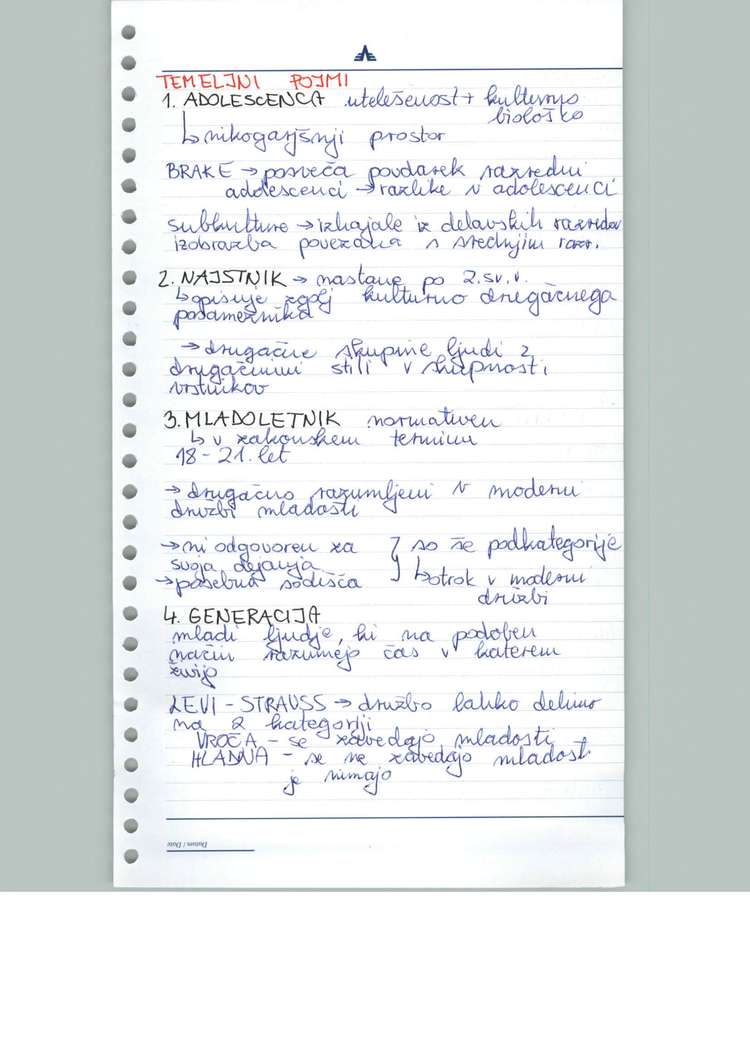 TEMELJNI POJMI
1. ADOLESCENCA utelešenost + kulturno
biološko
↳ nikogaršnji prostor
BRAKE → posveča poudarek razredni
adolescenci → razlike v adolescenci
subkulture → izhajale iz delavskih razredov
izobrazba povezana s srednjim razr.
2. NAJSTNIK → nastane po 2.sv.v.
↳ opisuje zgolj kulturno drugačnega
posameznika
→ drugačne skupine ljudi z
drugačnimi stili v skupnosti
vrstnikov
3. MLADOLETNIK normativen
↳ v zakonskem terminu
18 - 21. let
→ drugačno razumljeni v moderni
družbi mladosti
→ ni odgovoren za } so že podkategorije
svoja dejanja
→ posebna sodišča ↳ otrok v moderni
družbi
4. GENERACIJA
mladi ljudje, ki na podoben
način razumejo čas v katerem
živijo
LEVI - STRAUSS → družbo lahko delimo
na 2 kategoriji
VROČA - se zavedajo mladosti
HLADNA - se ne zavedajo mladost
je nimajo
Datum / Date